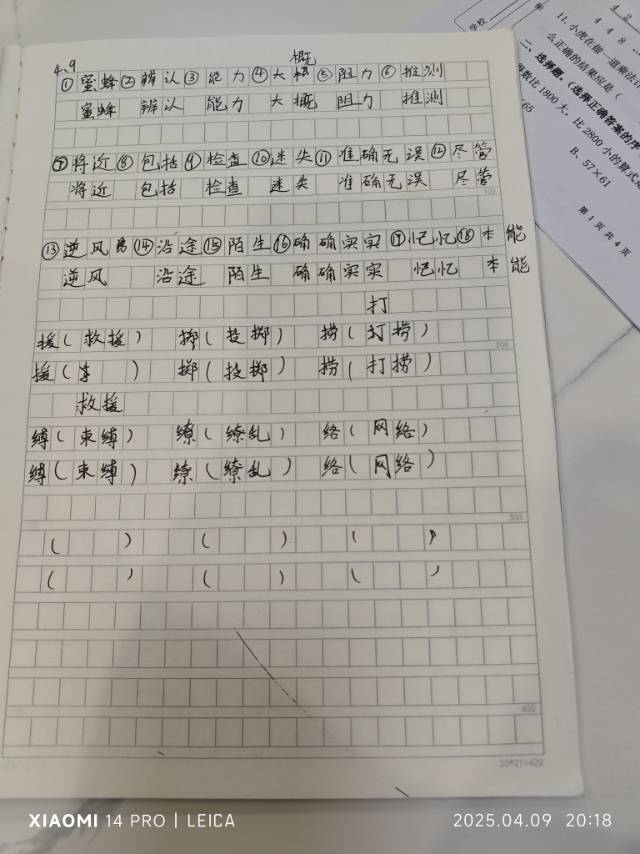 4.9
概
①蜜蜂②辨认③能力④大概⑤阻力⑥推测
蜜蜂 辨认 能力 大概 阻力 推测
⑦将近⑧包括⑨检查⑩迷失⑪准确无误⑫尽管
将近 包括 检查 迷失 准确无误 尽管
100
⑬逆风⑭沿途⑮陌生⑯确确实实⑰忆忆⑱本能
逆风 沿途 陌生 确确实实 忆忆 本能
打
援(救援) 掷(投掷) 捞(打捞)
200
援( ) 掷(投掷) 捞(打捞)
救援
缚(束缚) 缭(缭乱) 络(网络)
缚(束缚) 缭(缭乱) 络(网络)
300
( ) ( ) ( )
( ) ( ) ( )
400
20*21=420
学校
11.小虎在做一道乘法计
么正确的结果应是(
二、选择题。(选择正确答案的序
得数比1800大,比2800小的算式
×65
B、57×61
第1页共4页
XIAOMI 14 PRO | LEICA
2025.04.09 20:18